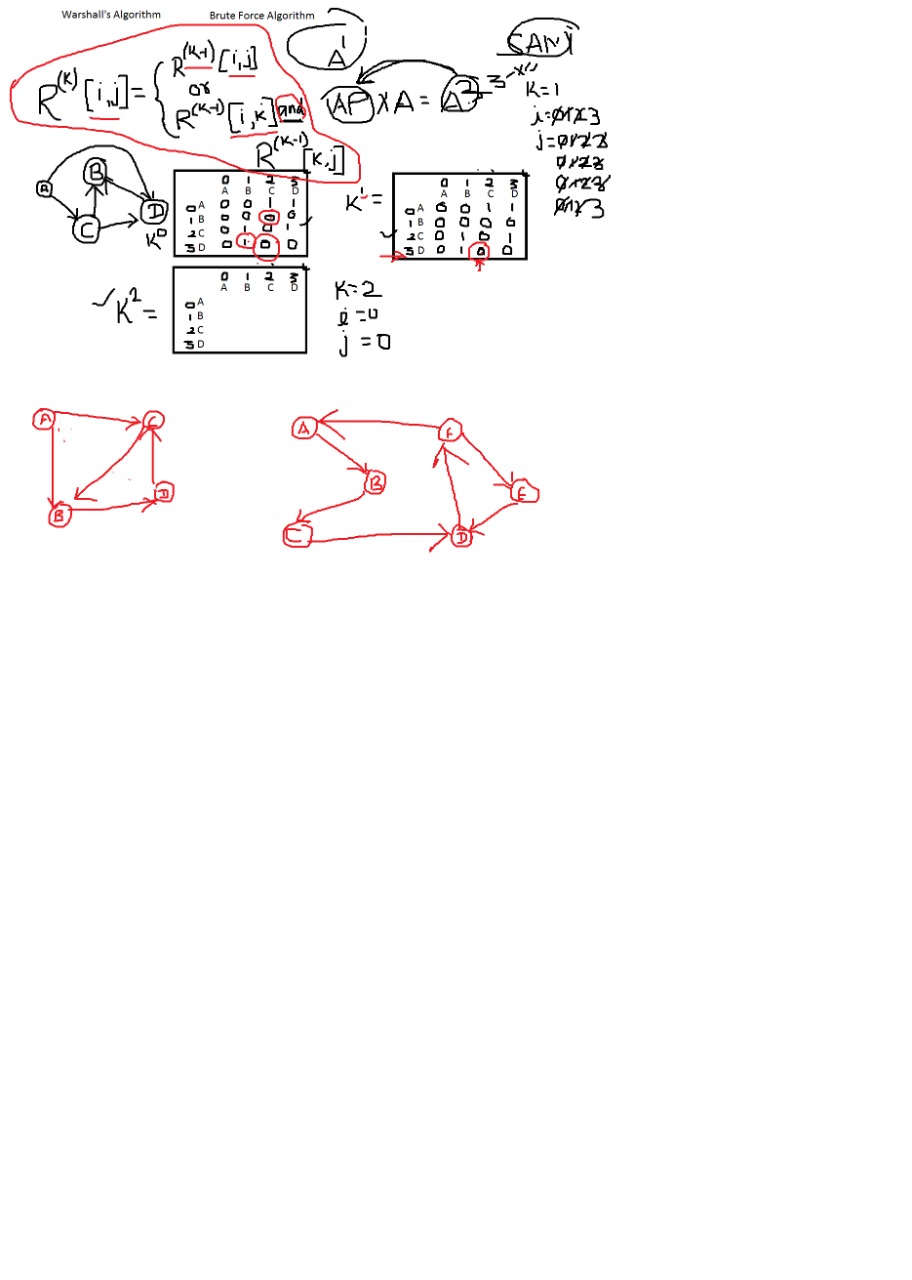 Warshall's Algorithm Brute Force Algorithm
R^(K)[i,j] = { R^(K-1)[i,j]
or
R^(K-1)[i,K] and
R^(K-1)[K,j]
A^1
AP X A = A^2
K=1
i=0123
j=0123
0123
0123
0123
A B C D
K^0
0 1 2 3
A B C D
0 A 0 0 1 1
1 B 0 0 0 0
2 C 0 1 0 1
3 D 0 1 0 0
K^1 =
0 1 2 3
A B C D
0 A 0 0 1 1
1 B 0 0 0 0
2 C 0 1 0 1
3 D 0 1 0 0
K^2 =
0 1 2 3
A B C D
0 A
1 B
2 C
3 D
K=2
i=0
j=0
A C
B D
A F
B E
C D